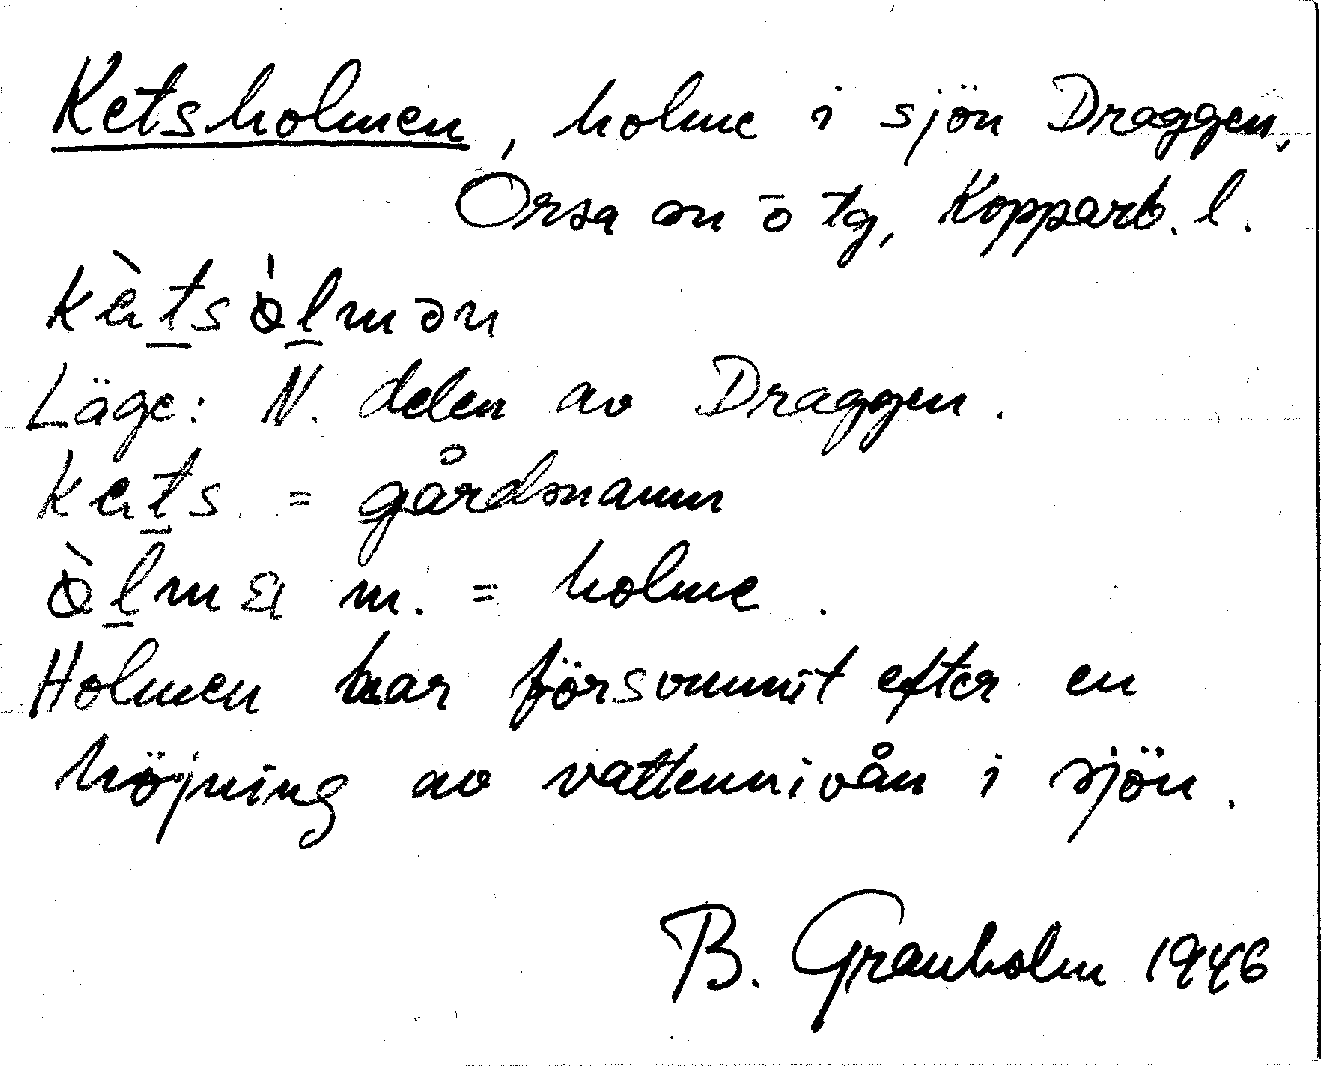 Ketsholmen, holme i sjön Draggen,
Orsa sn o tg, Kopparb. l.
kètsòlmən
Läge: N. delen av Draggen.
kets = gårdsnamn
òlma m. = holme.
Holmen har försvunnit efter en
höjning av vattennivån i sjön.
B. Granholm 1946